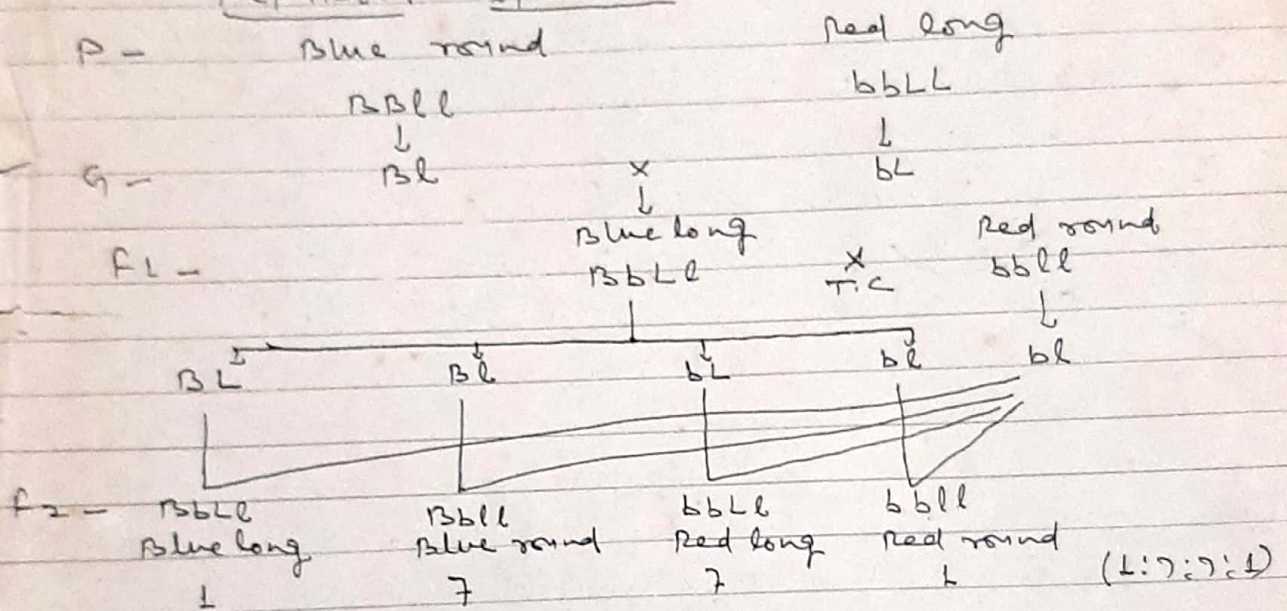 P - Blue round Red long
BBll bbLL
↓ ↓
G - Bl × bL
↓
Blue long Red round
F1 - BbLl × bbll
T.C ↓
BL Bl bL bl bl
F2 - BbLl Bbll bbLl bbll
Blue long Blue round Red long Red round
1 7 7 1 (1:7:7:1)